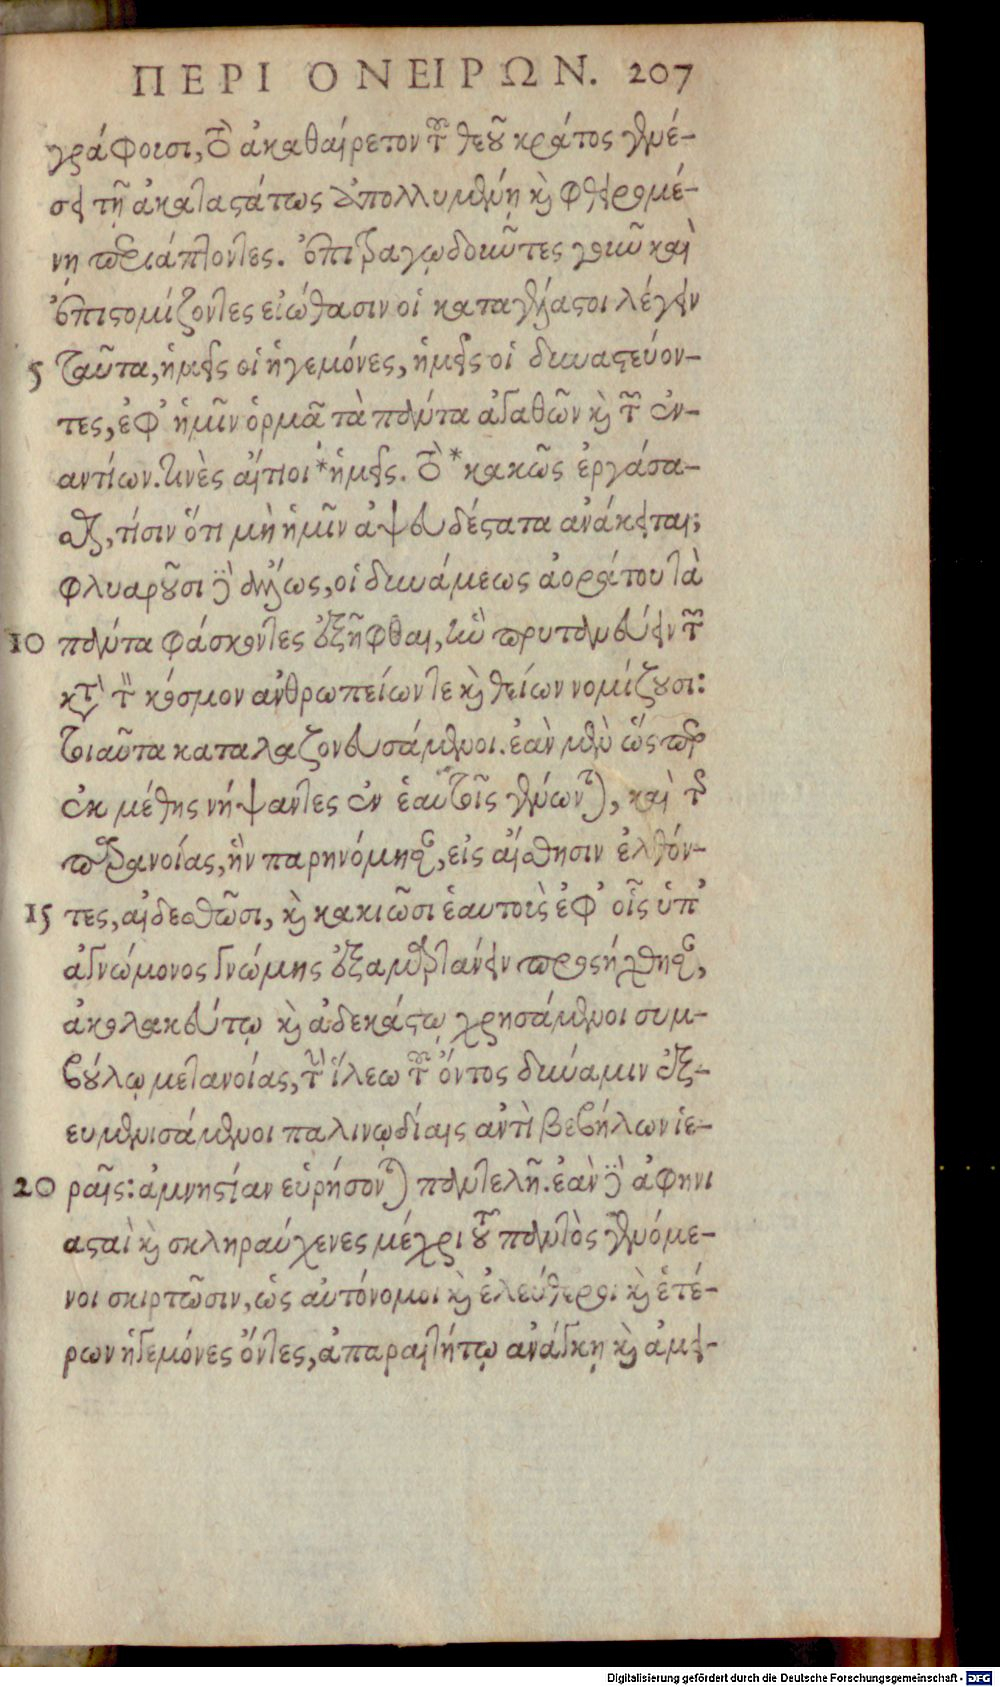 ΠΕΡΙ ΟΝΕΙΡΩΝ. 207
γράφουσι, τὸ ἀκαθαίρετον τοῦ θεοῦ κράτος γενέ-
σει τῇ ἀκαταστάτως ἀπολλυμένῃ καὶ φθειρομέ-
νῃ περιάπτοντες. ἐπιτραγῳδοῦντες γοῦν καὶ
ἐπιστομίζοντες εἰώθασιν οἱ καταγέλαστοι λέγειν
5 ταῦτα, ἡμεῖς οἱ ἡγεμόνες, ἡμεῖς οἱ δυναστεύον-
τες, ἐφ' ἡμῖν ὁρμᾷ τὰ πάντα ἀγαθῶν καὶ τῶν ἐν-
αντίων. τινὲς αἴτιοι * ἡμεῖς. τὸ * κακῶς ἐργάσα-
σθαι, τίσιν ὅτι μὴ ἡμῖν ἀψευδέστατα ἀνάκειται;
φλυαροῦσι δὲ ἄλλως, οἱ δυνάμεως ἀοράτου τὰ
10 πάντα φάσκοντες ἐξῆφθαι, ἣν πρυτανεύειν τῶν
κατὰ τὸν κόσμον ἀνθρωπείων τε καὶ θείων νομίζουσι:
τοιαῦτα καταλαζονευσάμενοι. ἐὰν μὲν ὥσπερ
ἐκ μέθης νήψαντες ἐν ἑαυτοῖς γένωνται, καὶ τῆς
παρανοίας, ἣν παρηνόμησαν, εἰς αἴσθησιν ἐλθόν-
15 τες, αἰδεσθῶσι, καὶ κακιῶσι ἑαυτοὺς ἐφ' οἷς ὑπ'
ἀγνώμονος γνώμης ἐξαμαρτάνειν προσήχθησαν,
ἀκολακεύτῳ καὶ ἀδεκάστῳ χρησάμενοι συμ-
βούλῳ μετανοίας, τὴν ἵλεω τοῦ ὄντος δύναμιν ἐξ-
ευμενισάμενοι παλινῳδίαις ἀντὶ βεβήλων ἱε-
20 ραῖς: ἀμνηστίαν εὑρήσονται παντελῆ. ἐὰν δὲ ἀφηνι
ασταὶ καὶ σκληραύχενες μέχρι τοῦ παντὸς γενόμε-
νοι σκιρτῶσιν, ὡς αὐτόνομοι καὶ ἐλεύθεροι καὶ ἑτέ-
ρων ἡγεμόνες ὄντες, ἀπαραιτήτῳ ἀνάγκῃ καὶ ἀμει-
Digitalisierung gefördert durch die Deutsche Forschungsgemeinschaft - DFG